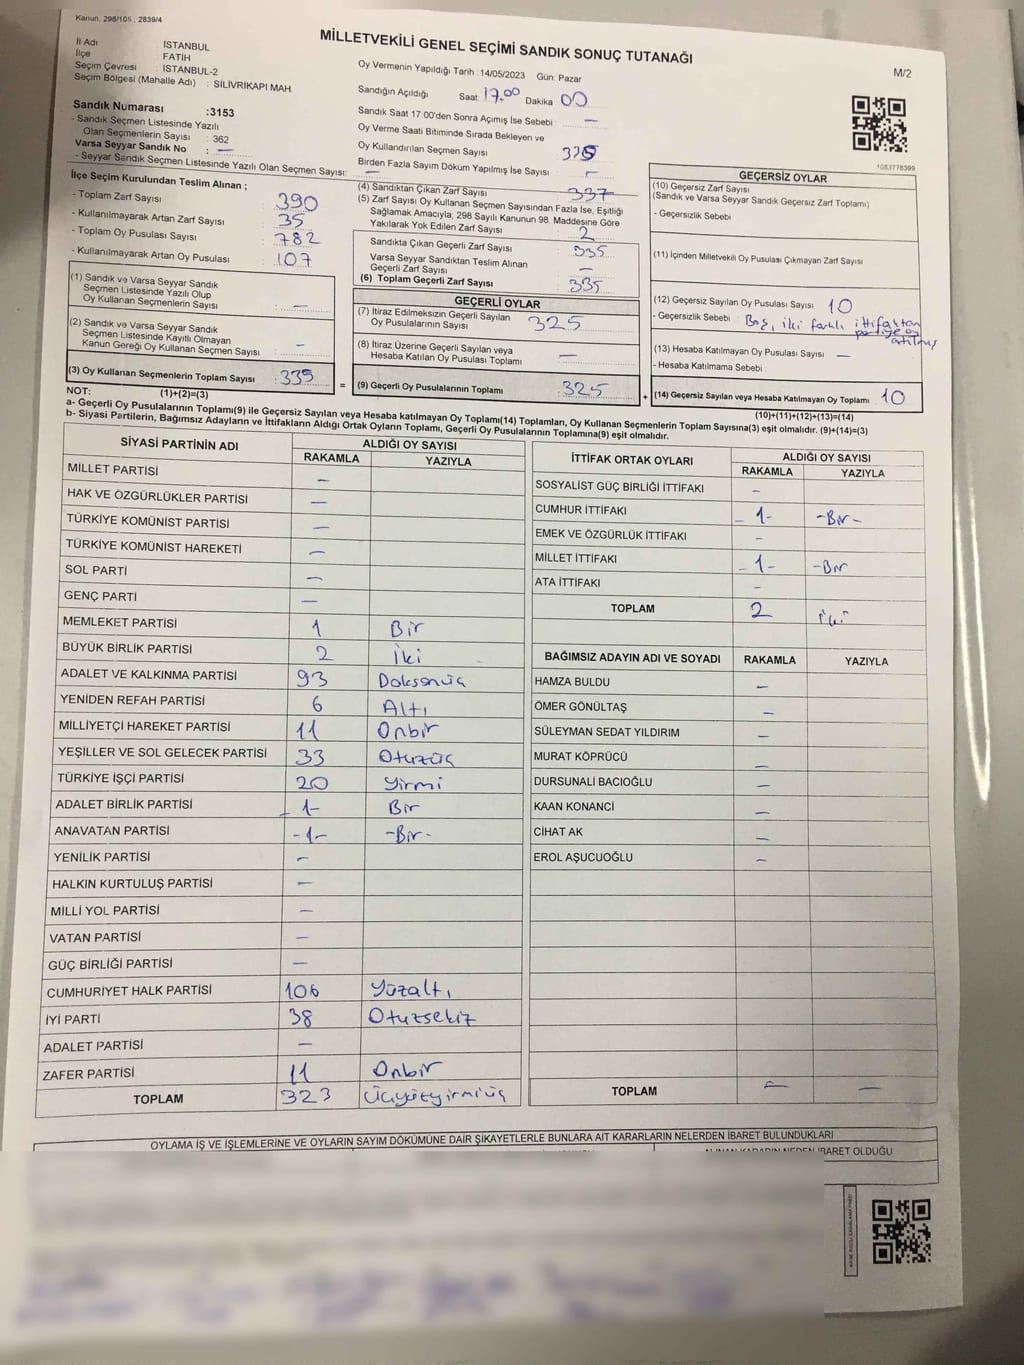 Kanun, 298/105 , 2839/4
MİLLETVEKİLİ GENEL SEÇİMİ SANDIK SONUÇ TUTANAĞI
M/2
İl Adı : İSTANBUL
İlçe FATİH
Seçim Çevresi : İSTANBUL-2
Seçim Bölgesi (Mahalle Adı) : SİLİVRİKAPI MAH.
Sandık Numarası :3153
- Sandık Seçmen Listesinde Yazılı
Olan Seçmenlerin Sayısı : 362
Varsa Seyyar Sandık No : —
- Seyyar Sandık Seçmen Listesinde Yazılı Olan Seçmen Sayısı: —
Oy Vermenin Yapıldığı Tarih :14/05/2023 Gün: Pazar
Sandığın Açıldığı Saat 17.00 Dakika 00
Sandık Saat 17:00'den Sonra Açımış İse Sebebi : —
Oy Verme Saati Bitiminde Sırada Bekleyen ve
Oy Kullandırılan Seçmen Sayısı : 335
Birden Fazla Sayım Döküm Yapılmış İse Sayısı : —
İlçe Seçim Kurulundan Teslim Alınan ;
- Toplam Zarf Sayısı : 390
- Kullanılmayarak Artan Zarf Sayısı : 35
- Toplam Oy Pusulası Sayısı : 782
- Kullanılmayarak Artan Oy Pusulası : 107
(1) Sandık ve Varsa Seyyar Sandık
Seçmen Listesinde Yazılı Olup
Oy Kullanan Seçmenlerin Sayısı : —
(2) Sandık ve Varsa Seyyar Sandık
Seçmen Listesinde Kayıtlı Olmayan
Kanun Gereği Oy Kullanan Seçmen Sayısı : —
(3) Oy Kullanan Seçmenlerin Toplam Sayısı : 335
(1)+(2)=(3)
(4) Sandıktan Çıkan Zarf Sayısı : 337
(5) Zarf Sayısı Oy Kullanan Seçmen Sayısından Fazla İse, Eşitliği
Sağlamak Amacıyla, 298 Sayılı Kanunun 98. Maddesine Göre
Yakılarak Yok Edilen Zarf Sayısı : 2
Sandıkta Çıkan Geçerli Zarf Sayısı : 335
Varsa Seyyar Sandıktan Teslim Alınan
Geçerli Zarf Sayısı : —
(6) Toplam Geçerli Zarf Sayısı : 335
GEÇERLİ OYLAR
(7) İtiraz Edilmeksizin Geçerli Sayılan
Oy Pusulalarının Sayısı : 325
(8) İtiraz Üzerine Geçerli Sayılan veya
Hesaba Katılan Oy Pusulası Toplamı : —
= (9) Geçerli Oy Pusulalarının Toplamı : 325
1083778399
GEÇERSİZ OYLAR
(10) Geçersiz Zarf Sayısı
(Sandık ve Varsa Seyyar Sandık Geçersiz Zarf Toplamı)
- Geçersizlik Sebebi
(11) İçinden Milletvekili Oy Pusulası Çıkmayan Zarf Sayısı
(12) Geçersiz Sayılan Oy Pusulası Sayısı 10
- Geçersizlik Sebebi : Boş, iki farklı ittifaktan
partiye oy
atılmış
(13) Hesaba Katılmayan Oy Pusulası Sayısı —
- Hesaba Katılmama Sebebi
+ (14) Geçersiz Sayılan veya Hesaba Katılmayan Oy Toplamı 10
(10)+(11)+(12)+(13)=(14)
NOT:
a- Geçerli Oy Pusulalarının Toplamı(9) ile Geçersiz Sayılan veya Hesaba katılmayan Oy Toplamı(14) Toplamları, Oy Kullanan Seçmenlerin Toplam Sayısına(3) eşit olmalıdır. (9)+(14)=(3)
b- Siyasi Partilerin, Bağımsız Adayların ve İttifakların Aldığı Ortak Oyların Toplamı, Geçerli Oy Pusulalarının Toplamına(9) eşit olmalıdır.
SİYASİ PARTİNİN ADI ALDIĞI OY SAYISI
RAKAMLA YAZIYLA
MİLLET PARTİSİ —
HAK VE ÖZGÜRLÜKLER PARTİSİ —
TÜRKİYE KOMÜNİST PARTİSİ —
TÜRKİYE KOMÜNİST HAREKETİ —
SOL PARTİ —
GENÇ PARTİ —
MEMLEKET PARTİSİ 1 Bir
BÜYÜK BİRLİK PARTİSİ 2 İki
ADALET VE KALKINMA PARTİSİ 93 Doksanüç
YENİDEN REFAH PARTİSİ 6 Altı
MİLLİYETÇİ HAREKET PARTİSİ 11 Onbir
YEŞİLLER VE SOL GELECEK PARTİSİ 33 Otuzüç
TÜRKİYE İŞÇİ PARTİSİ 20 Yirmi
ADALET BİRLİK PARTİSİ -1- Bir
ANAVATAN PARTİSİ -1- -Bir-
YENİLİK PARTİSİ —
HALKIN KURTULUŞ PARTİSİ —
MİLLİ YOL PARTİSİ —
VATAN PARTİSİ —
GÜÇ BİRLİĞİ PARTİSİ —
CUMHURİYET HALK PARTİSİ 106 Yüzaltı
İYİ PARTİ 38 Otuzsekiz
ADALET PARTİSİ —
ZAFER PARTİSİ 11 Onbir
TOPLAM 323 Üçyüzyirmiüç
İTTİFAK ORTAK OYLARI ALDIĞI OY SAYISI
RAKAMLA YAZIYLA
SOSYALİST GÜÇ BİRLİĞİ İTTİFAKI —
CUMHUR İTTİFAKI -1- -Bir-
EMEK VE ÖZGÜRLÜK İTTİFAKI —
MİLLET İTTİFAKI -1- -Bir-
ATA İTTİFAKI —
TOPLAM 2 İki
BAĞIMSIZ ADAYIN ADI VE SOYADI RAKAMLA YAZIYLA
HAMZA BULDU —
ÖMER GÖNÜLTAŞ —
SÜLEYMAN SEDAT YILDIRIM —
MURAT KÖPRÜCÜ —
DURSUNALİ BACIOĞLU —
KAAN KONANCİ —
CİHAT AK —
EROL AŞUCUOĞLU —
TOPLAM — —
OYLAMA İŞ VE İŞLEMLERİNE VE OYLARIN SAYIM DÖKÜMÜNE DAİR ŞİKAYETLERLE BUNLARA AİT KARARLARIN NELERDEN İBARET BULUNDUKLARI
ALINAN KARARIN NEDEN İBARET OLDUĞU